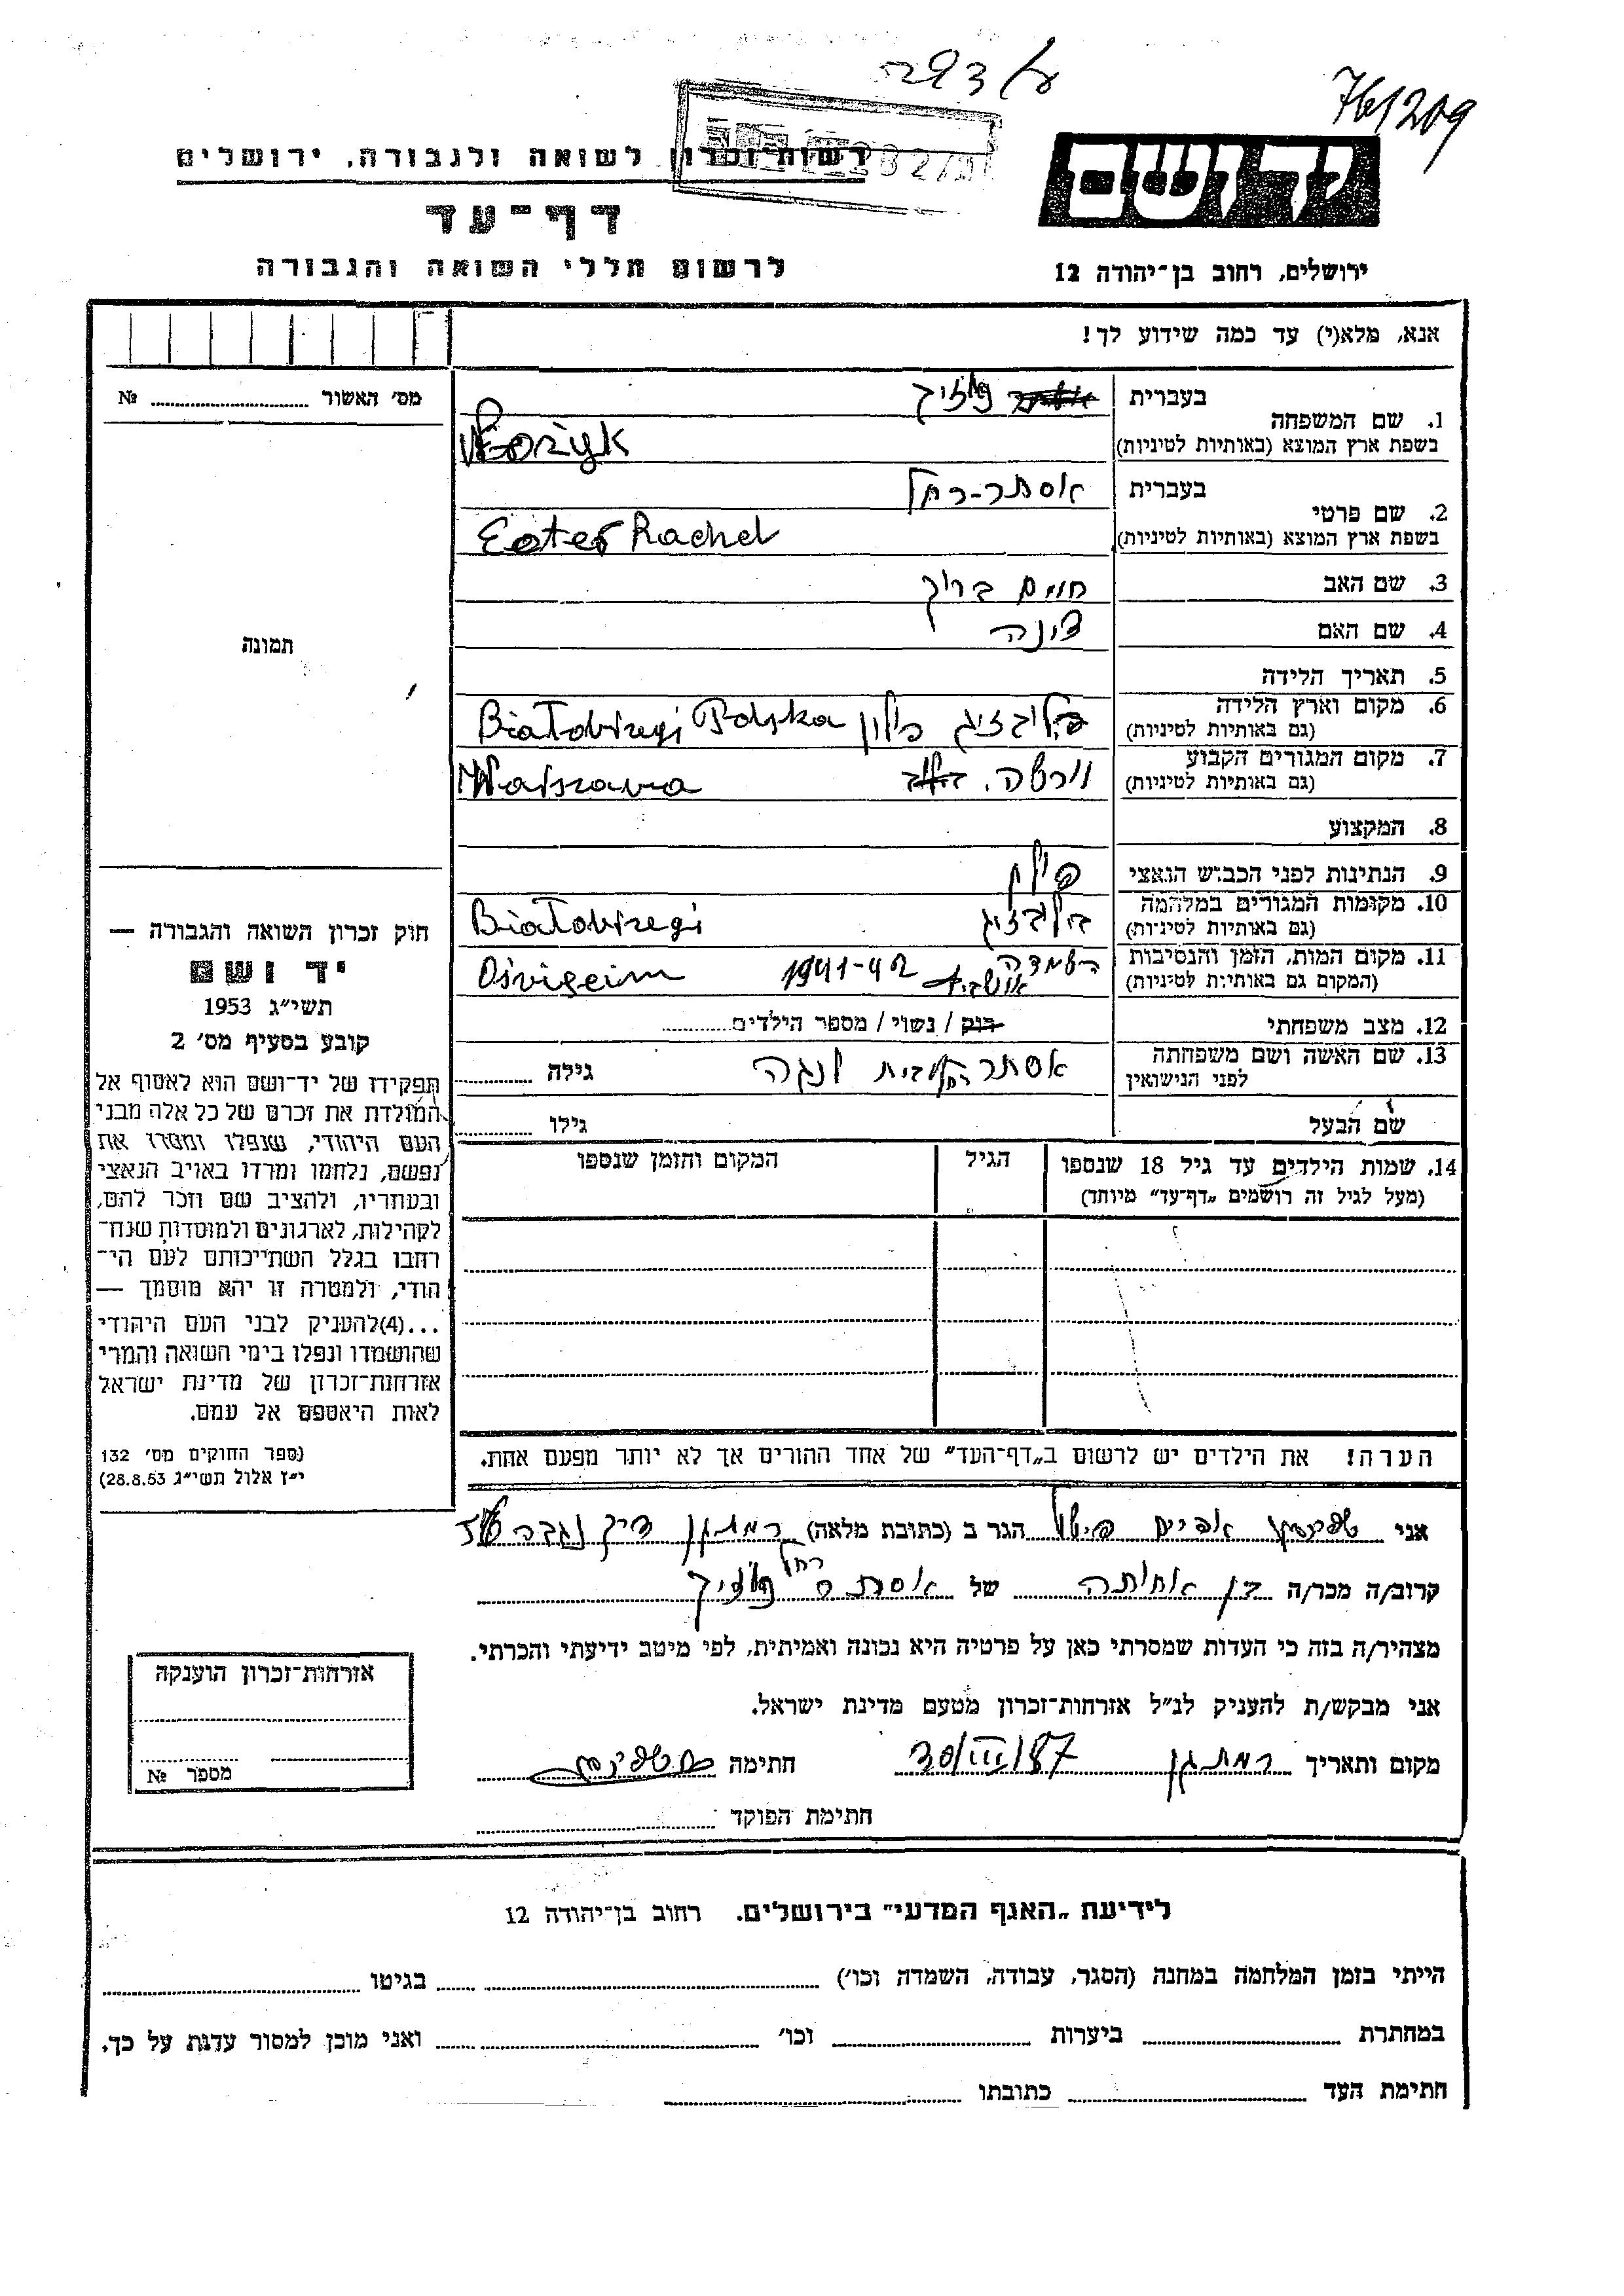 761209
יד ושם
רשות־זכרון לשואה ולגבורה, ירושלים
דף־עד
לרשום חללי השואה והגבורה
ירושלים, רחוב בן־יהודה 12
אנא, מלא(י) עד כמה שידוע לך!
מס׳ האשור № 
1. שם המשפחה
בעברית
בשפת ארץ המוצא (באותיות לטיניות)
2. שם פרטי
בעברית אסתר-רחל
בשפת ארץ המוצא (באותיות לטיניות) Ester Rachel
3. שם האב חיים ברוך
4. שם האם דינה
5. תאריך הלידה
6. מקום וארץ הלידה
(גם באותיות לטיניות) פולין Białobrzegi Polska
7. מקום המגורים הקבוע
(גם באותיות לטיניות) וורשה. Warszawa
8. המקצוע
9. הנתינות לפני הכבוש הנאצי
10. מקומות המגורים במלחמה
(גם באותיות לטיניות) Białobrzegi
11. מקום המות, הזמן והנסיבות
(המקום גם באותיות לטיניות) השמדה 1941-42
12. מצב משפחתי רוק / נשוי / מספר הילדים
13. שם האשה ושם משפחתה
לפני הנישואין אסתר גילה
שם הבעל גילו
14. שמות הילדים עד גיל 18 שנספו
(מעל לגיל זה רושמים „דף־עד״ מיוחד)
הגיל
המקום והזמן שנספו
הערה! את הילדים יש לרשום ב„דף־העד״ של אחד ההורים אך לא יותר מפעם אחת.
תמונה
חוק זכרון השואה והגבורה —
יד ושם
תשי״ג 1953
קובע בסעיף מס׳ 2
תפקידו של יד־ושם הוא לאסוף אל
המולדת את זכרם של כל אלה מבני
העם היהודי, שנפלו ומסרו את
נפשם, נלחמו ומרדו באויב הנאצי
ובעוזריו, ולהציב שם וזכר להם,
לקהילות, לארגונים ולמוסדות שנח־
רבו בגלל השתייכותם לעם הי־
הודי, ולמטרה זו יהא מוסמך —
...(4)להעניק לבני העם היהודי
שהושמדו ונפלו בימי השואה והמרי
אזרחות־זכרון של מדינת ישראל
לאות היאספם אל עמם.
(ספר החוקים מס׳ 132
י״ז אלול תשי״ג 28.8.53)
אני הגר ב (כתובת מלאה) רמת גן דרך נגבה
קרוב/ה מכר/ה בן אחותה של אסתר רחל
מצהיר/ה בזה כי העדות שמסרתי כאן על פרטיה היא נכונה ואמיתית, לפי מיטב ידיעתי והכרתי.
אני מבקש/ת להעניק לנ״ל אזרחות־זכרון מטעם מדינת ישראל.
מקום ותאריך רמת גן 30/III/87 חתימה
חתימת הפוקד
אזרחות־זכרון הוענקה
מספר №
לידיעת „האגף המדעי״ בירושלים. רחוב בן־יהודה 12
הייתי בזמן המלחמה במחנה (הסגר, עבודה, השמדה וכו׳) בגיטו
במחתרת ביערות וכו׳ ואני מוכן למסור עדות על כך.
חתימת העד כתובתו